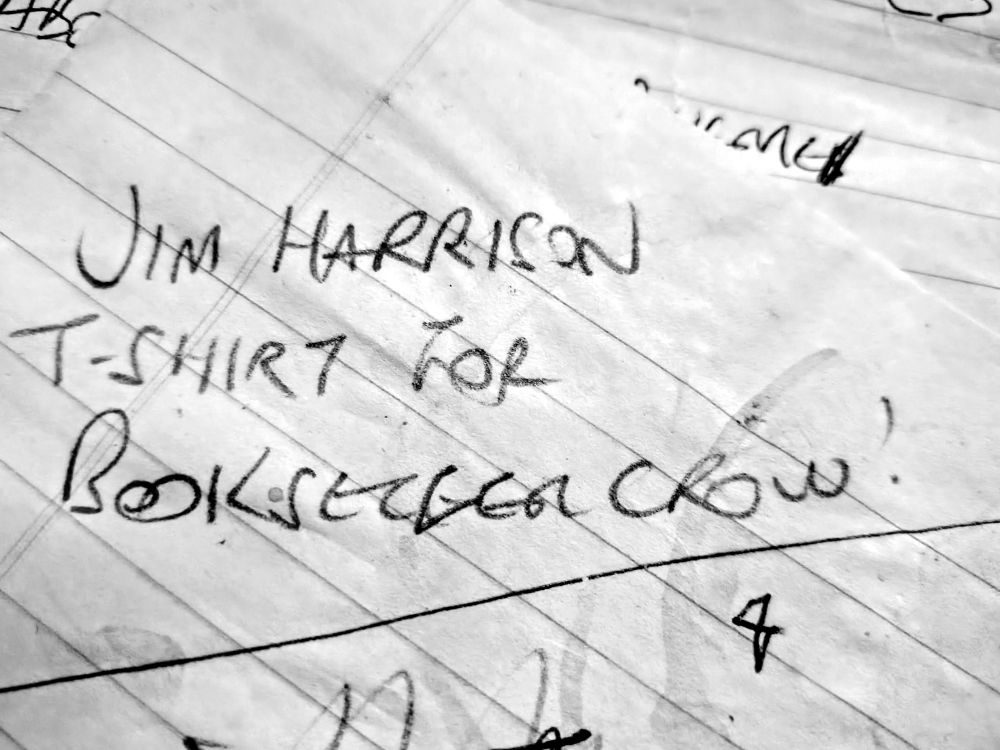 JIM HARRISON
T-SHIRT FOR
BOOKSELLER CROW!
4